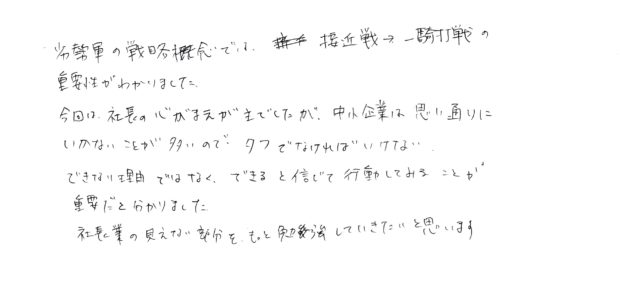 劣勢軍の戦略概念では、接近戦→一騎打戦の
重要性がわかりました。
今回は、社長の心がまえが主でしたが、中小企業は思い通りに
いかないことが多いので、タフでなければいけない。
できない理由ではなく、できると信じて行動してみることが
重要だと分かりました
社長業の見えない部分を、もっと勉強していきたいと思います